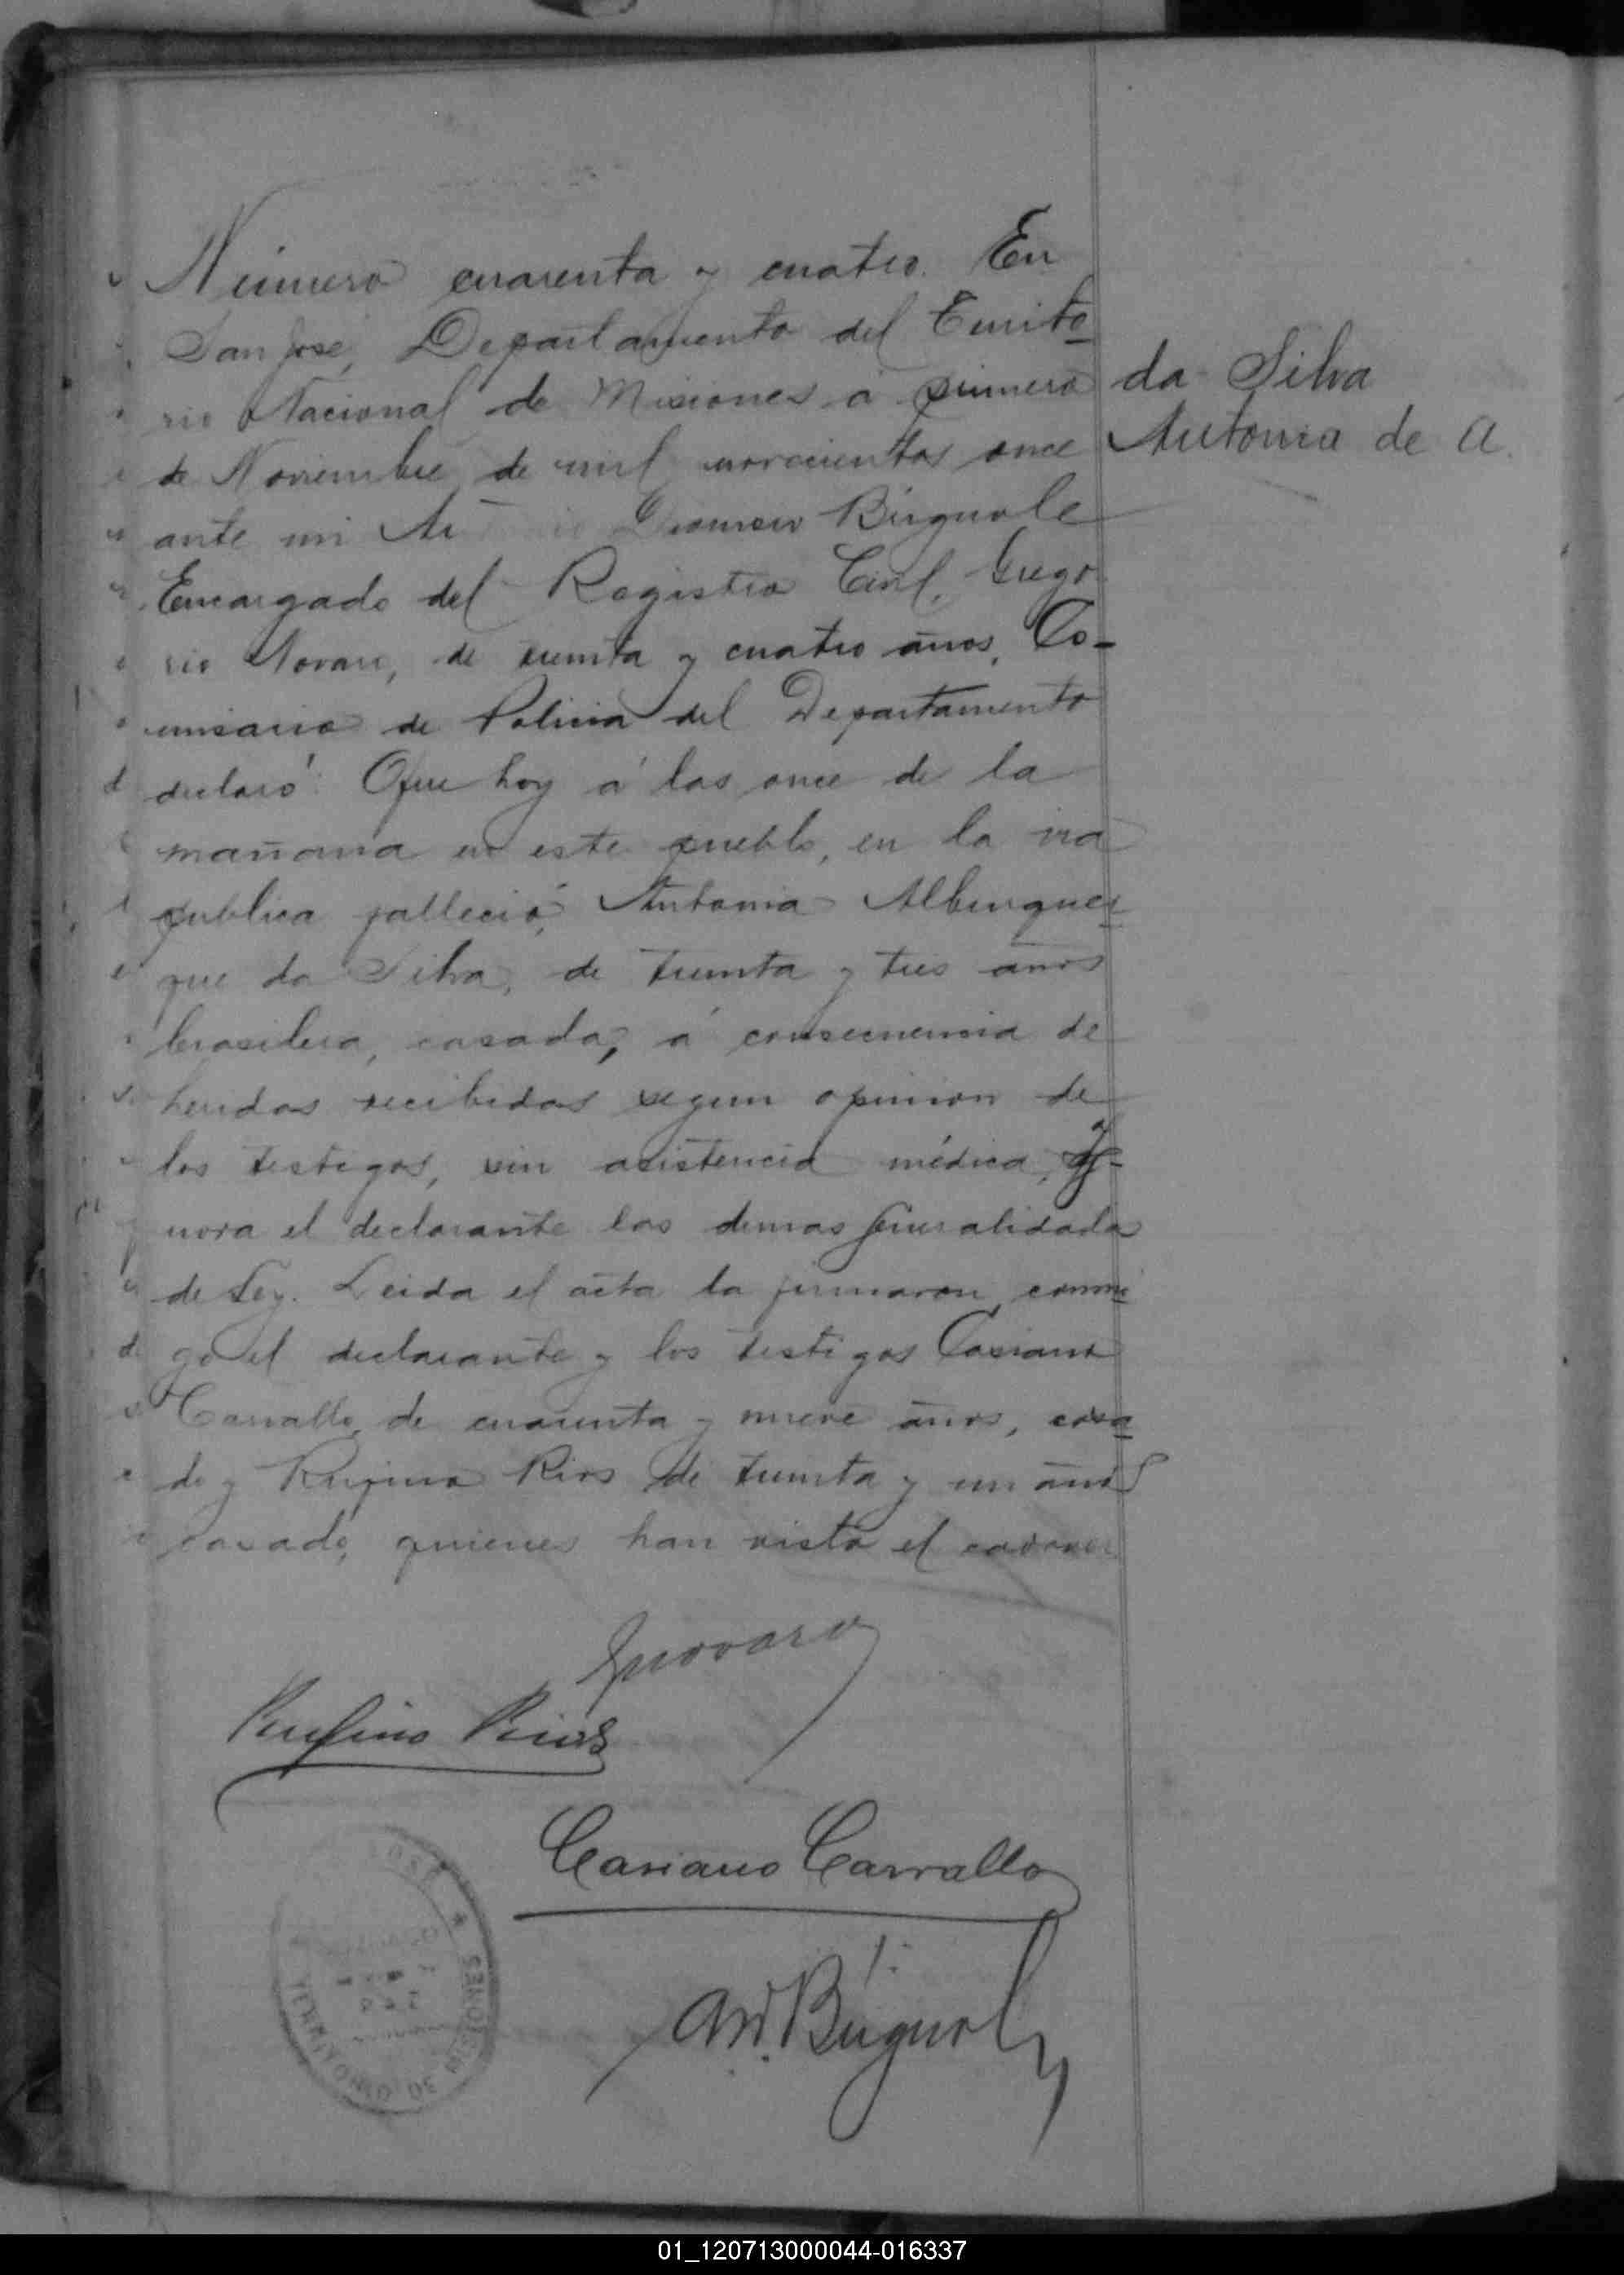 Número cuarenta y cuatro. En
San José, Departamento del Territo-
rio Nacional de Misiones á primero
de Noviembre de mil novecientos once
ante mi Birgnole
Encargado del Registro Civil, Grego
rio Novaro, de treinta y cuatro años, Co-
misario de Policia del Departamento
declaró: Que hoy á las once de la
mañana en este pueblo, en la via
publica falleció, Antonia Alburquer-
que da Silva, de treinta y tres años
brasilera, casada, á consecuencia de
heridas recibidas segun opinion de
los testigos, sin asistencia médica, Ig-
nora el declarante las demas generalidades
de Ley. Leida el acta la firmaron conmi-
go el declarante y los testigos Casiano
Carvallo, de cuarenta y nueve años, casa-
do y Rufino Rios de treinta y un años
casado, quienes han visto el cadaver
da Silva
Antonia de A.
GNovaro
Rufino Rios
Casiano Carvallo
JOSÉ * TERRITORIO DE MISIONES